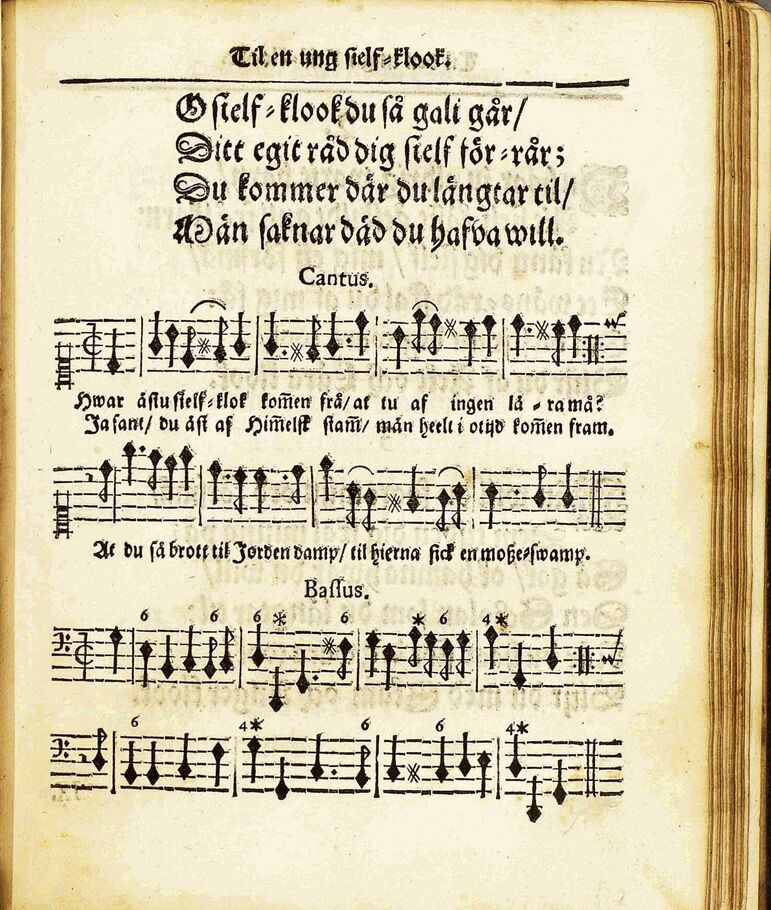 Til en ung sielf-klook.
O sielf-klook du så gali går/
Ditt egit råd dig sielf för-rår;
Du kommer där du längtar til/
Män saknar däd du hafva will.
Cantus.
Hwar ästu sielf-klok kom̄en frå/ at tu af ingen lä-ra må?
Ja sant/ du äst af Him̄elsk stam̄/ män heelt i otijd kom̄en fram.
At du så brott til Jorden damp/ til hierna fick en moße-swamp.
Bassus.
6 6 6 * 6 * 6 4 *
6 4* 6 6 4*